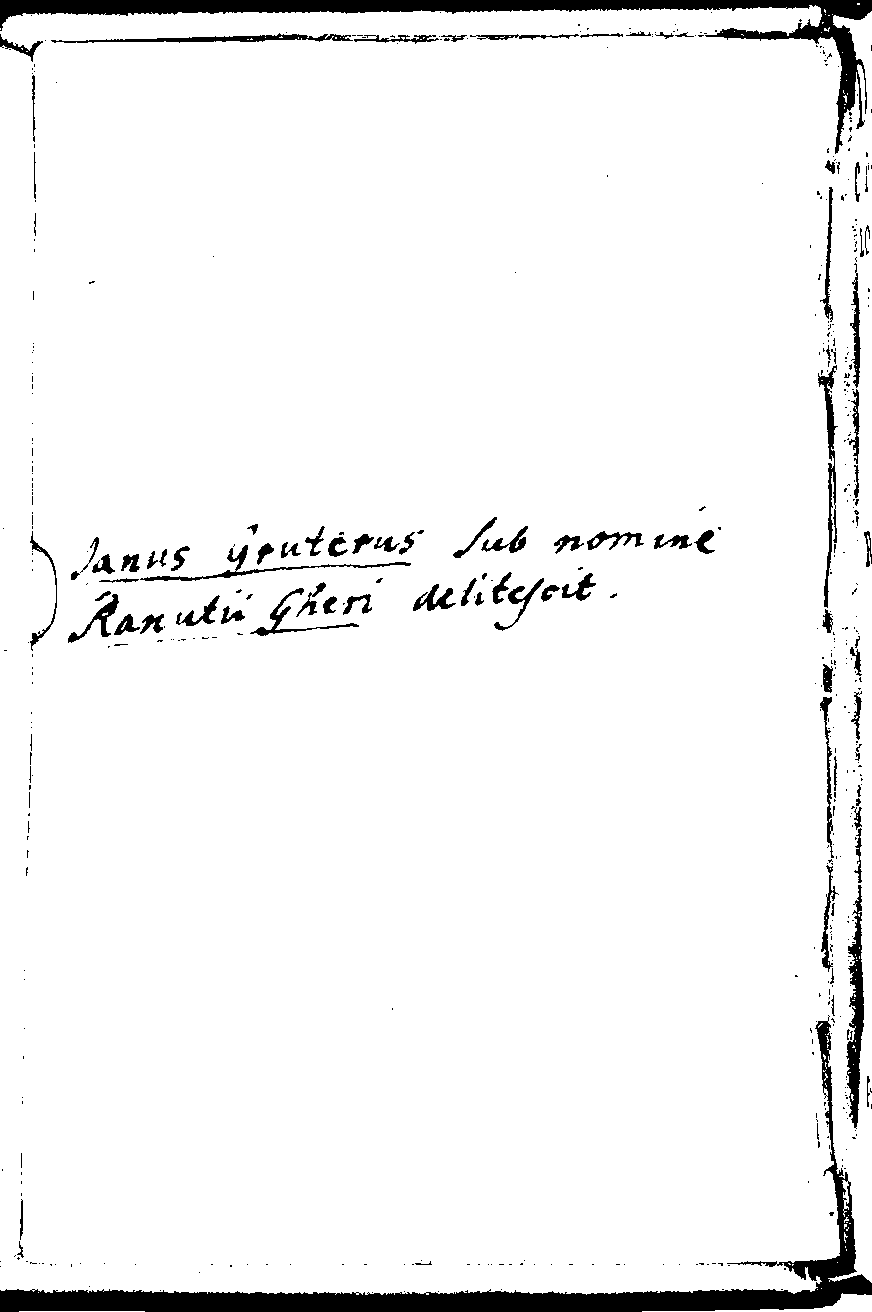 Janus Gruterus sub nomine
Ranutii Gheri delitescit.